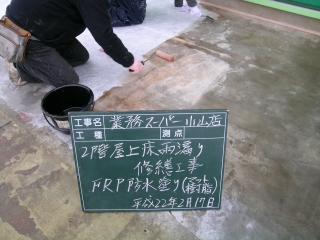 工事名 業務スーパー小山店
工種 測点
2階屋上床雨漏り
修繕工事
FRP防水塗り(マット樹脂)
平成22年2月17日